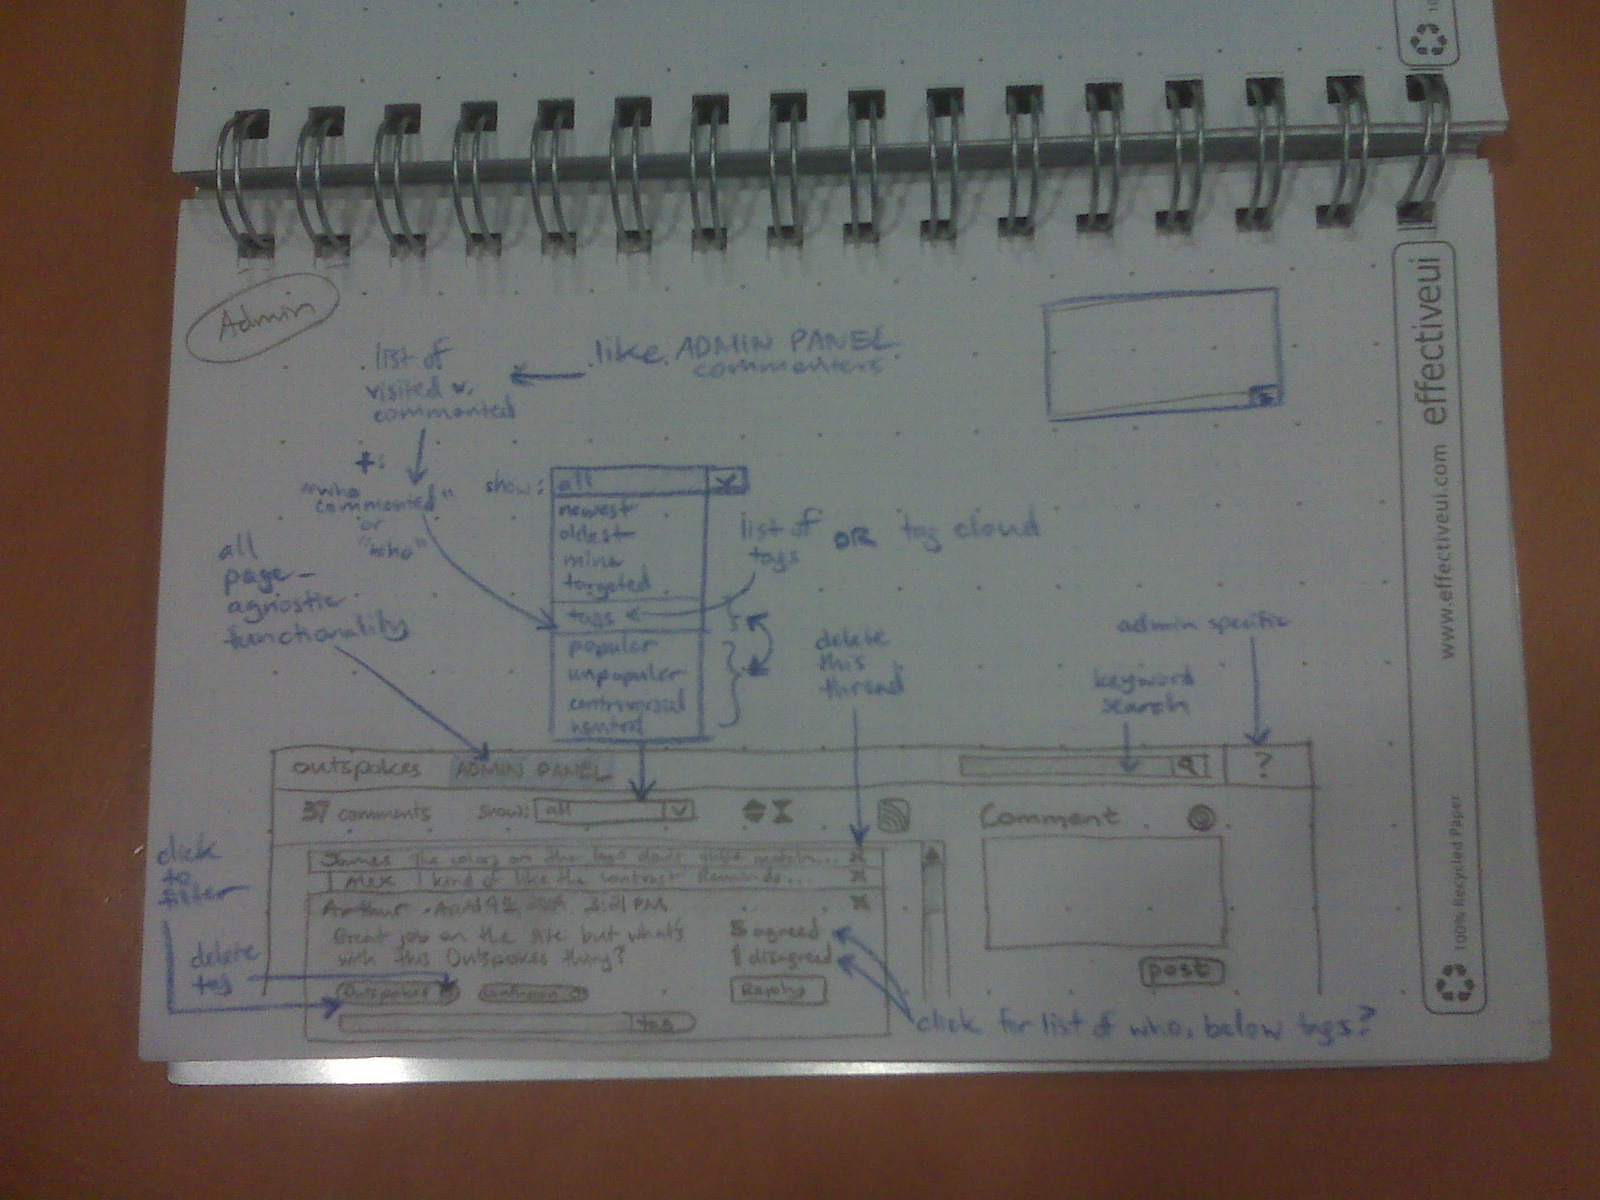 Admin
like ADMIN PANEL
commenters
list of
visited v.
commented
+:
"who
commented"
or
"who"
show:
all
newest
oldest
mine
targeted
tags
popular
unpopular
controversial
neutral
list of
tags
OR tag cloud
all
page-
agnostic
functionality
delete
this
thread
admin specific
keyword
search
outspokes ADMIN PANEL
?
37 comments show: all
Comment
James The colors on the logo don't quite match...
Alex I kind of like the contrast. Reminds...
Arthur
3:21 PM
Great job on the site but what's
with this Outspokes thing?
5 agreed
1 disagreed
Reply
Outspokes
tag
post
click
to
filter
delete
tag
click for list of who, below tags?
effectiveui
www.effectiveui.com
100% Recycled Paper